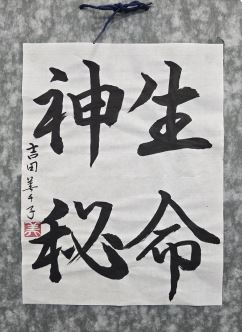 生命
神秘
吉田美千子
美